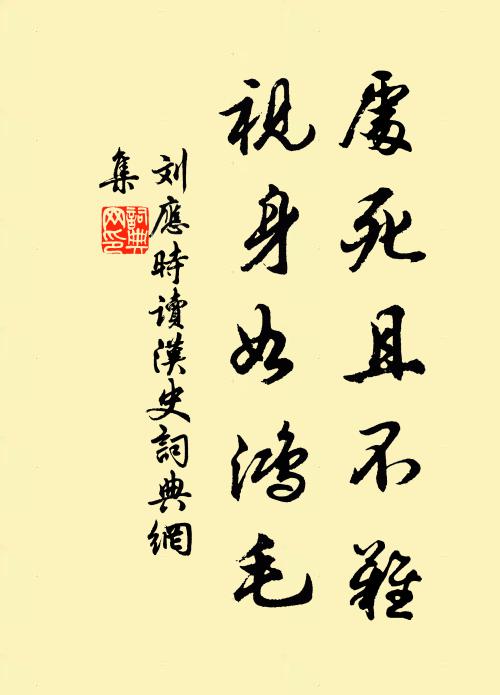 處死且不難
視身如鴻毛
刘應時讀漢史詞典網
集
詞典
网印